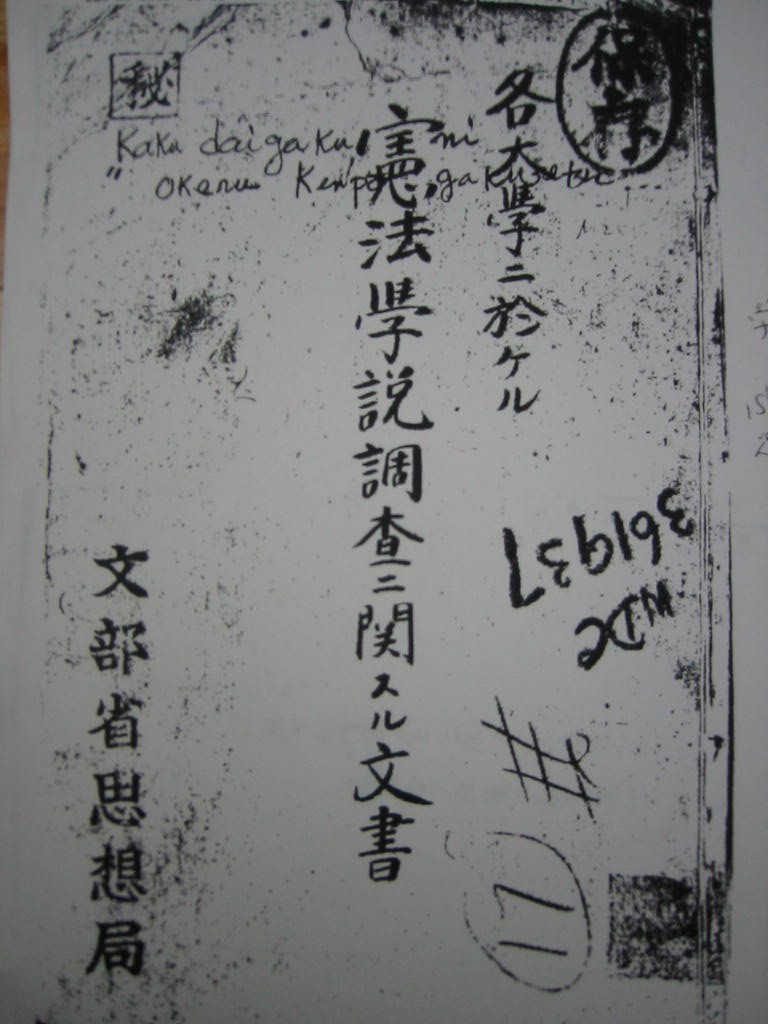 保存
各大學ニ於ケル
憲法學説調査ニ関スル文書
文部省思想局
秘
Kaku daigaku ni
"Okeru Kenpo gakusetsu
361937
NDC
#
17